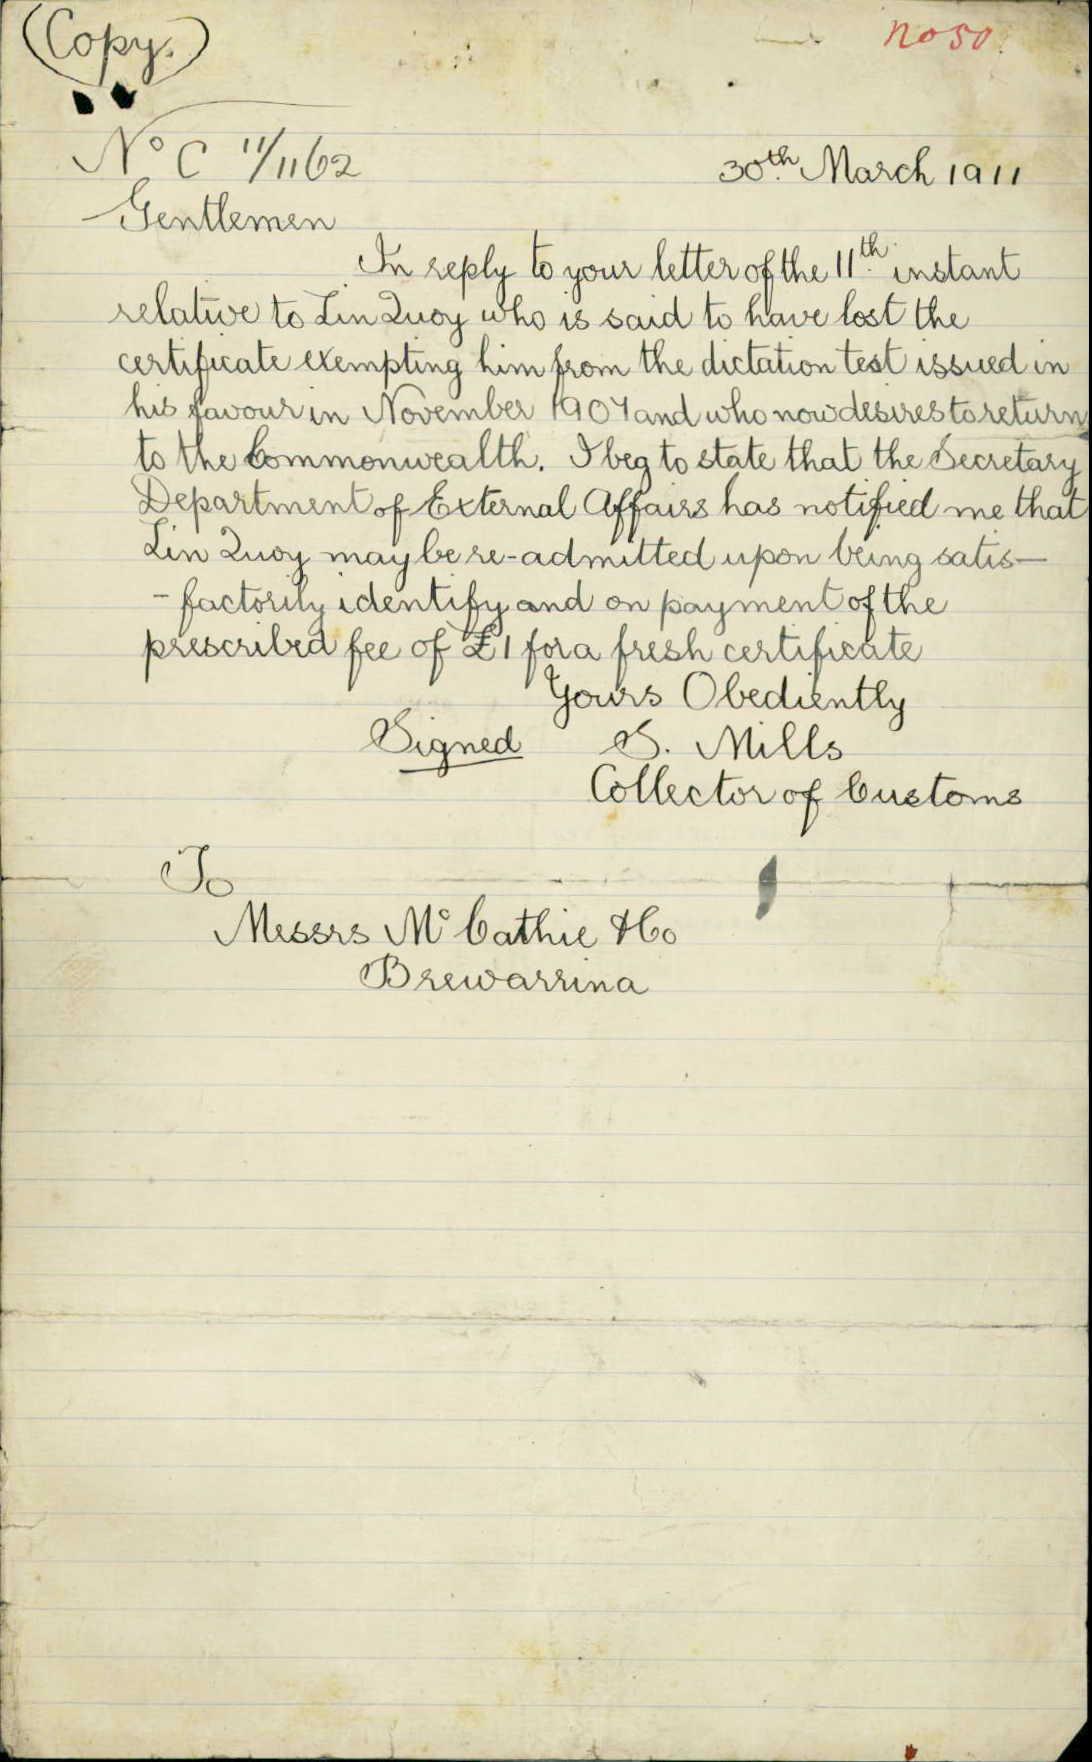 (Copy.)
no 50
No C 11/1162
30th March 1911
Gentlemen
In reply to your letter of the 11th instant
relative to Lin Quoy who is said to have lost the
certificate exempting him from the dictation test issued in
his favour in November 1907 and who now desires to return
to the Commonwealth. I beg to state that the Secretary
Department of External Affairs has notified me that
Lin Quoy may be re-admitted upon being satis-
-factorily identify and on payment of the
prescribed fee of £1 for a fresh certificate
Yours Obediently
Signed S. Mills
Collector of Customs
To
Messrs Mc Cathie & Co
Brewarrina